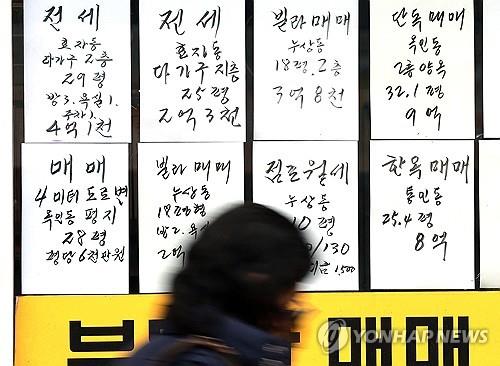 전세
효자동
다가구 2층
29평
방3. 욕실1.
주차1.
4억1천
전세
효자동
다가구 지층
25평
2억3천
빌라매매
누상동
18평. 2층
3억8천
단독매매
옥인동
2층양옥
32.1평
9억
매매
4미터도로변
옥인동 평지
28평
평당6천만원
빌라매매
누상동
방2.
2억
점포월세
누상동
10평
/130
1,500
한옥매매
통인동
25.4평
8억
매매
YONHAP NEWS